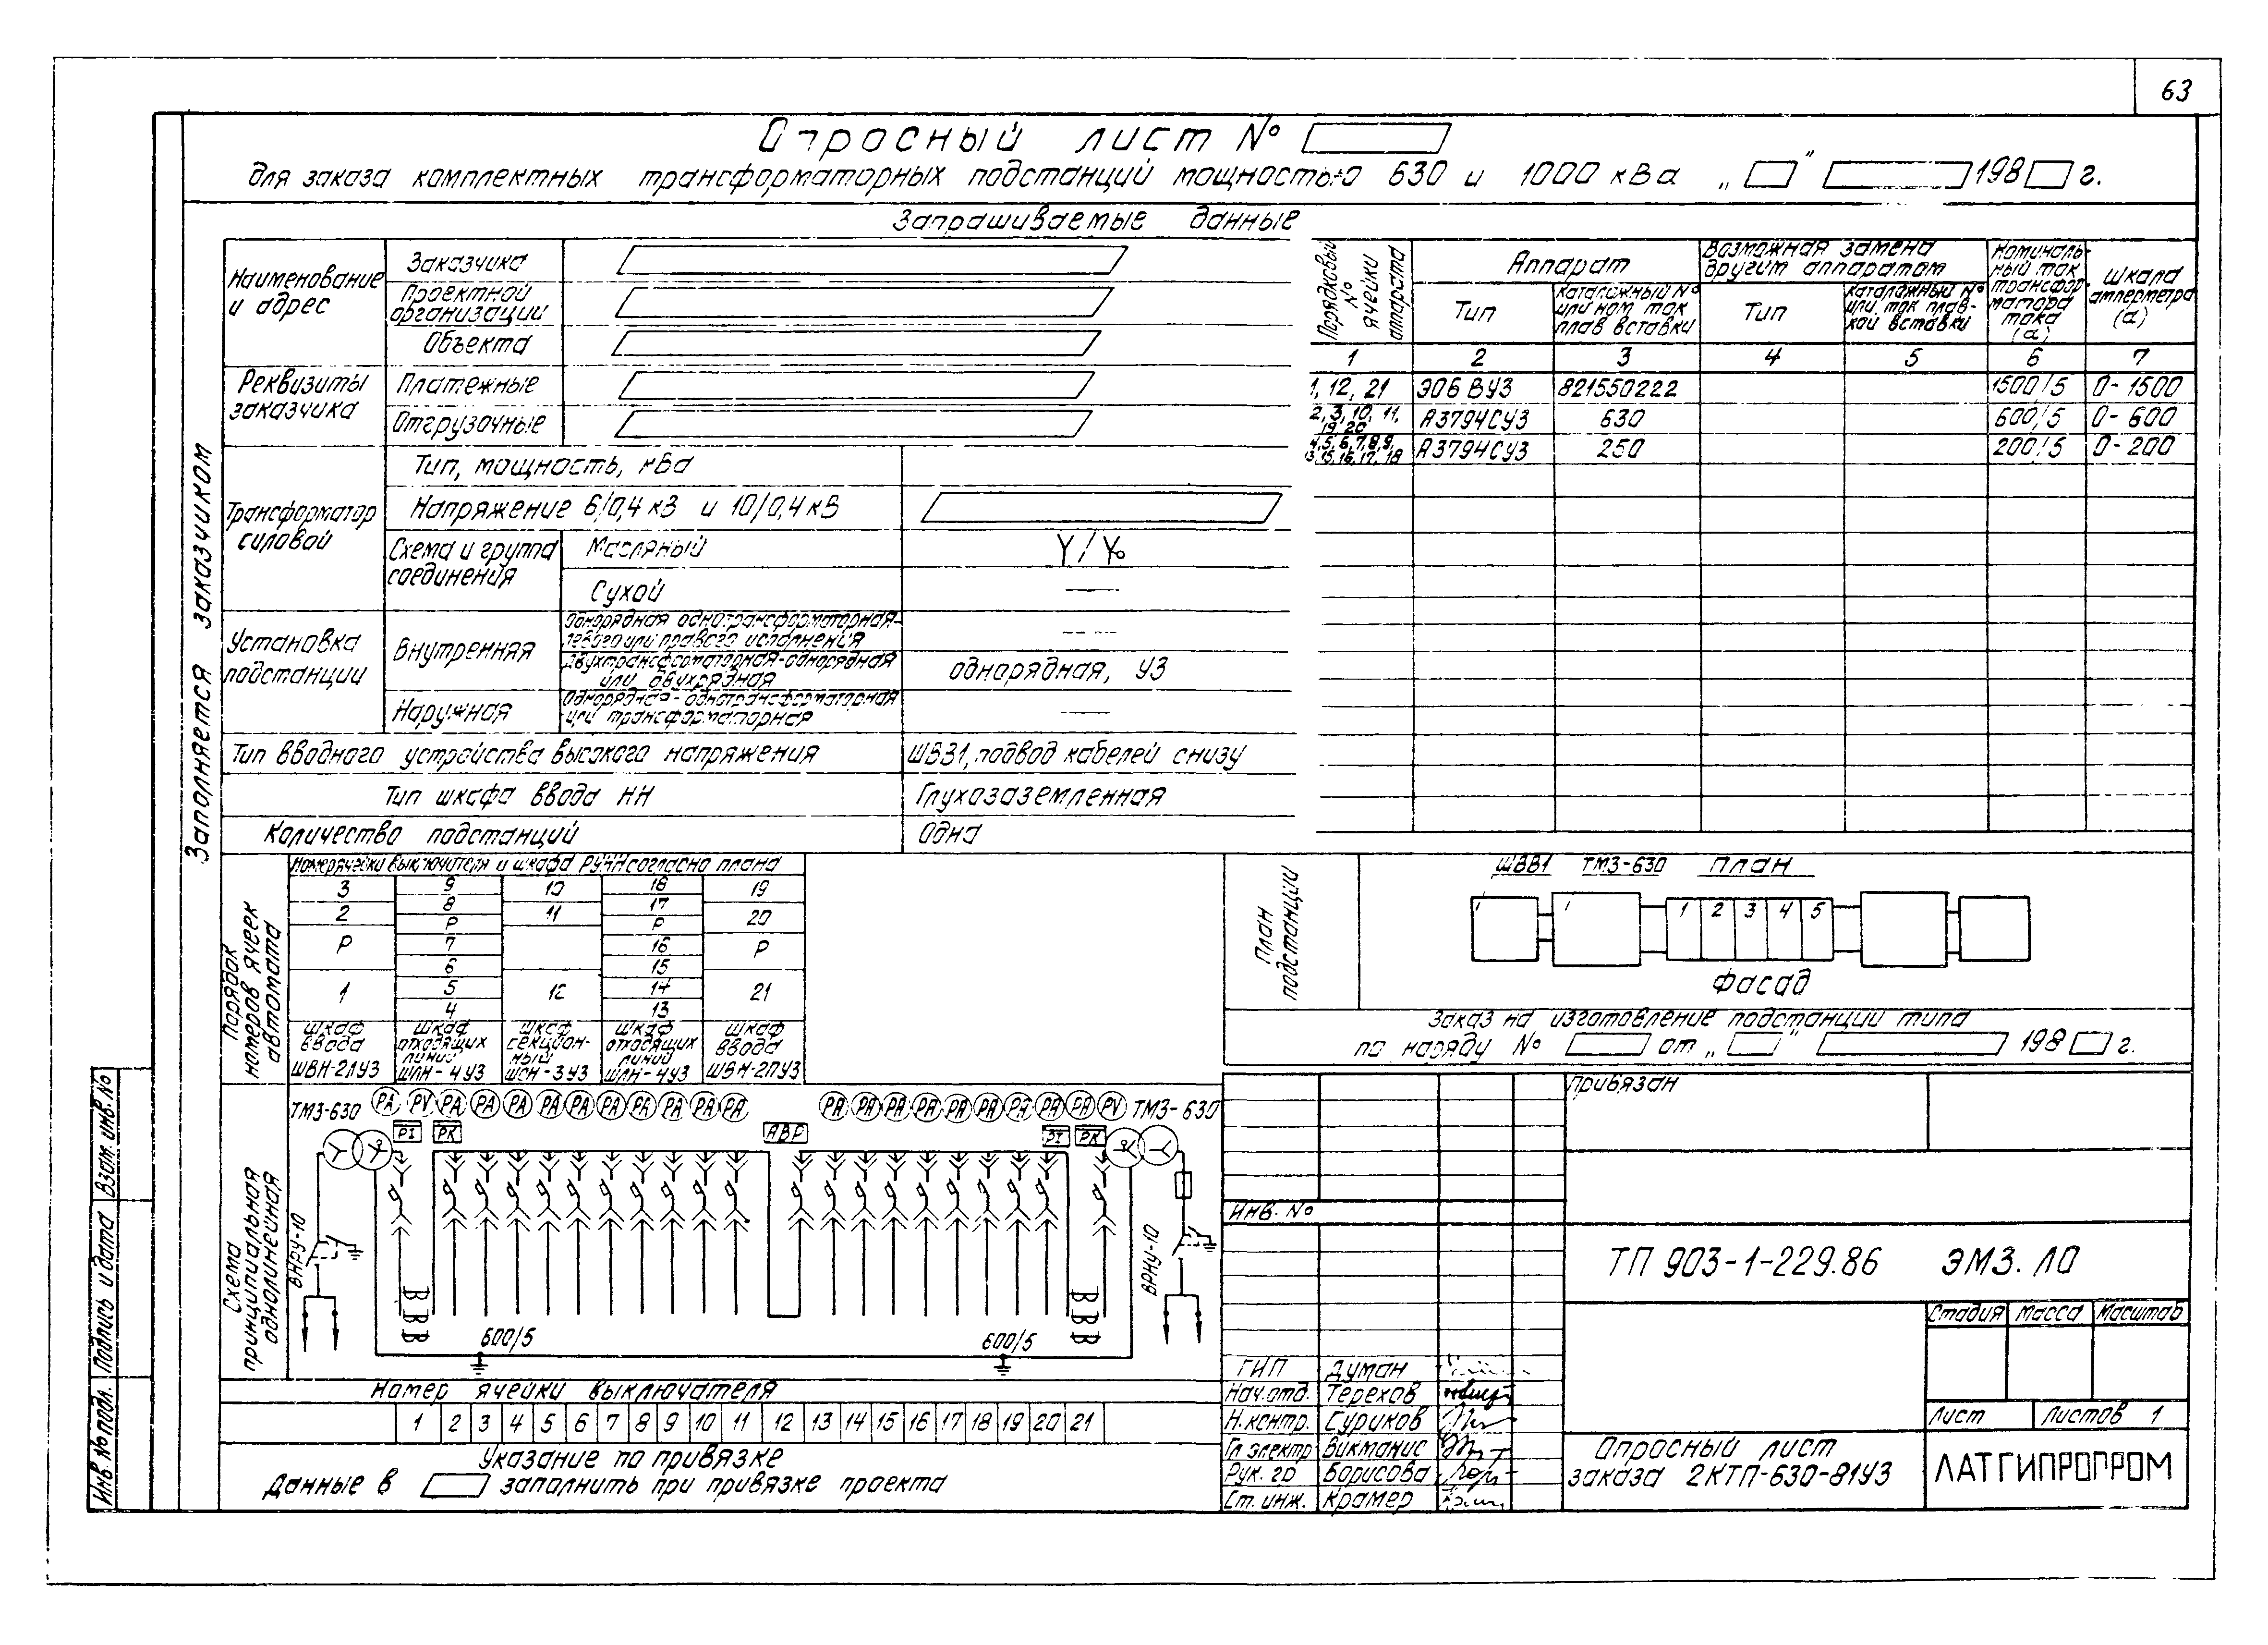 63
Опросный лист №
для заказа комплектных трансформаторных подстанций мощностью 630 и 1000 кВа „ " 198 г.
Запрашиваемые данные
Заполняется заказчиком
Наименование и адрес
Заказчика
Проектной организации
Объекта
Реквизиты заказчика
Платежные
Отгрузочные
Трансформатор силовой
Тип, мощность, кВа
Напряжение 6/0,4 кВ и 10/0,4 кВ
Схема и группа соединения
Масляный
Y/Yo
Сухой
—
Установка подстанции
Внутренняя
Однорядная однотрансформаторная-левого или правого исполнения
—
Двухтрансформаторная-однорядная или двухрядная
однорядная, У3
Наружная
Однорядная-однотрансформаторная или трансформаторная
—
Тип вводного устройства высокого напряжения
ШВВ1, подвод кабелей снизу
Тип шкафа ввода НН
Глухозаземленная
Количество подстанций
Одна
Порядковый № ячейки аппарата
Аппарат
Возможная замена другим аппаратом
Номинальный ток трансформатора тока (а)
Шкала амперметра (а)
Тип
Каталожный № или ном ток плав вставки
Тип
Каталожный № или ток плавкой вставки
1 2 3 4 5 6 7
1, 12, 21 Э06 ВУ3 821550222 1500/5 0-1500
2, 3, 10, 11, 19, 20 А3794СУ3 630 600/5 0-600
4,5,6,7,8,9, 13,15,16,17,18 А3794СУ3 250 200/5 0-200
Порядок номеров ячеек автомата
Номер ячейки выключателя и шкафа РУНН согласно плана
3 9 10 18 19
2 8 11 17 20
Р Р Р Р
7 16
6 15
1 5 12 14 21
4 13
шкаф ввода ШВН-2ЛУ3
шкаф отходящих линий ШЛН-4У3
шкаф секционный ШСН-3У3
шкаф отходящих линий ШЛН-4У3
шкаф ввода ШВН-2ПУ3
План подстанции
ШВВ1 ТМЗ-630 План
1 1 1 2 3 4 5
Фасад
Заказ на изготовление подстанции типа
по наряду № от „ " 198 г.
Схема принципиальная однолинейная
ТМЗ-630 РА РV РА РА РА РА РА РА РА РА РА РА РА РА РА РА РА РА РА РА РА РV ТМЗ-630
PI РК АВР PI РК
ВНРУ-10
ВРНУ-10
600/5 600/5
Номер ячейки выключателя
1 2 3 4 5 6 7 8 9 10 11 12 13 14 15 16 17 18 19 20 21
Указание по привязке
Данные в заполнить при привязке проекта
Привязан
Инв. №
ТП 903-1-229.86 ЭМ3. Л0
Стадия Масса Масштаб
Лист Листов 1
ГИП Думан
Нач.отд. Терехов
Н.контр. Суриков
Гл электр Викманис
Рук. гр Борисова
Ст. инж. Крамер
Опросный лист
заказа 2КТП-630-81У3
ЛАТГИПРОПРОМ
Взам. инв. №
Подпись и дата
Инв. № подл.